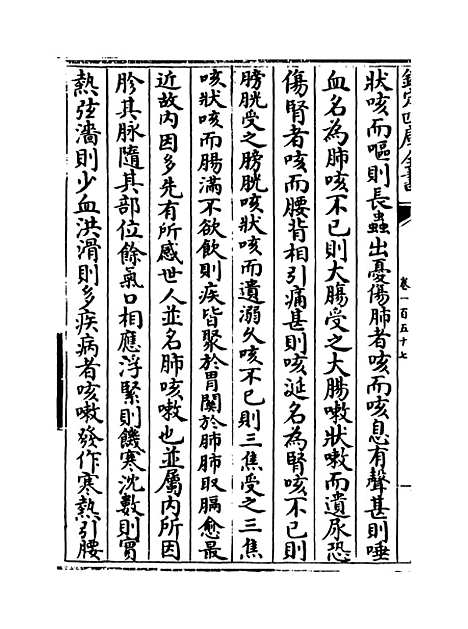 欽定四庫全書
卷一百五十七
狀咳而嘔則長蟲出憂傷肺者咳而咳息有聲甚則唾
血名為肺咳不已則大腸受之大腸嗽狀嗽而遺尿恐
傷腎者咳而腰背相引痛甚則咳涎名為腎咳不已則
膀胱受之膀胱咳狀咳而遺溺久咳不已則三焦受之三焦
咳狀咳而腸滿不欲飲則疾皆聚於胃關於肺肺取膈愈最
近故内因多先有所感世人並名肺咳嗽也並屬内所因
胗其脉隨其部位餘氣口相應浮緊則饑寒沈數則實
熱弦濇則少血洪滑則多疾病者咳嗽發作寒熱引腰